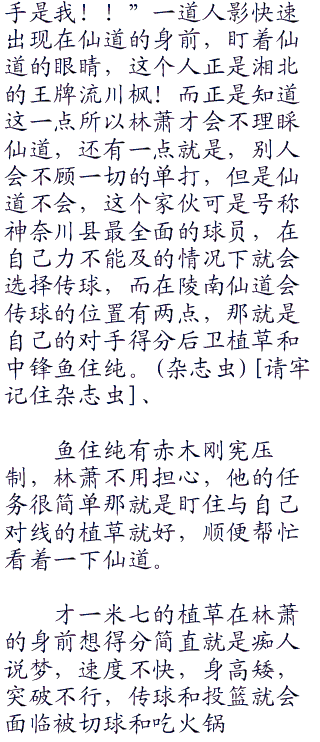 手是我！！”一道人影快速
出现在仙道的身前，盯着仙
道的眼睛，这个人正是湘北
的王牌流川枫！而正是知道
这一点所以林萧才会不理睬
仙道，还有一点就是，别人
会不顾一切的单打，但是仙
道不会，这个家伙可是号称
神奈川县最全面的球员，在
自己力不能及的情况下就会
选择传球，而在陵南仙道会
传球的位置有两点，那就是
自己的对手得分后卫植草和
中锋鱼住纯。(杂志虫)[请牢
记住杂志虫]、
鱼住纯有赤木刚宪压
制，林萧不用担心，他的任
务很简单那就是盯住与自己
对线的植草就好，顺便帮忙
看着一下仙道。
才一米七的植草在林萧
的身前想得分简直就是痴人
说梦，速度不快，身高矮，
突破不行，传球和投篮就会
面临被切球和吃火锅